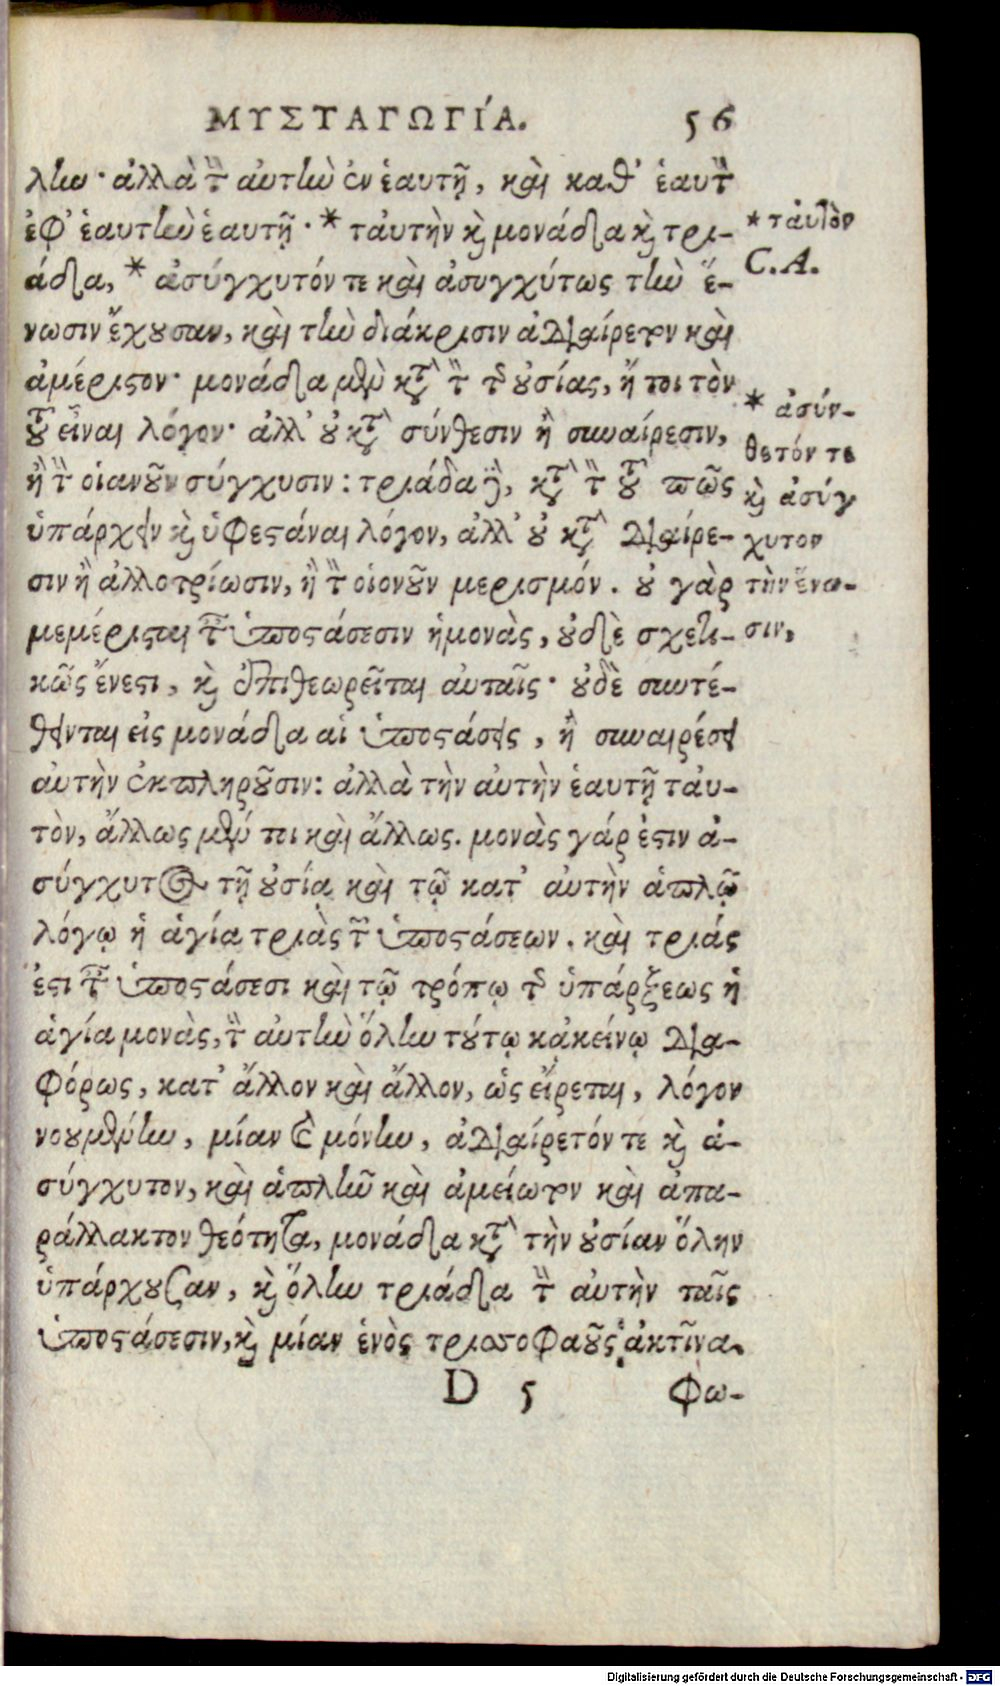 ΜΥΣΤΑΓΩΓΊΑ. 56
λὴν· ἀλλὰ τὴν αὐτὴν ἐν ἑαυτῇ, καὶ καθ᾽ ἑαυτὴν
ἐφ᾽ ἑαυτὴν ἑαυτῇ· * ταὐτὴν κỳ μονάδα κỳ τρι-
άδα, * ἀσύγχυτόν τε καὶ ἀσυγχύτως τὴν ἕ-
νωσιν ἔχουσαν, καὶ τὴν διάκρισιν ἀδιαίρετον καὶ
ἀμέριστον· μονάδα μὲν κατὰ τὸν τῆς οὐσίας, ἤτοι τὸν
τοῦ εἶναι λόγον· ἀλλ᾽ οὐ κατὰ σύνθεσιν ἢ συναίρεσιν,
ἢ τὴν οἱανοῦν σύγχυσιν: τριάδα δὲ, κατὰ τὸν τοῦ πῶς
ὑπάρχειν κỳ ὑφεστάναι λόγον, ἀλλ᾽ οὐ κατὰ διαίρε-
σιν ἢ ἀλλοτρίωσιν, ἢ τὸν οἱονοῦν μερισμόν. οὐ γὰρ
μεμέρισται ταῖς ὑποστάσεσιν ἡ μονὰς, οὐδὲ σχετι-
κῶς ἔνεστι, κỳ ἐπιθεωρεῖται αὐταῖς· οὐδὲ συντέ-
θεινται εἰς μονάδα αἱ ὑποστάσεις, ἢ συναιρέσει
αὐτὴν ἐκπληροῦσιν: ἀλλὰ τὴν αὐτὴν ἑαυτῇ ταὐ-
τὸν, ἄλλως μέν τοι καὶ ἄλλως. μονὰς γάρ ἐστιν ἀ-
σύγχυτος τῇ οὐσίᾳ καὶ τῷ κατ᾽ αὐτὴν ἁπλῷ
λόγῳ ἡ ἁγία τριὰς τῶν ὑποστάσεων. καὶ τριάς
ἐστι ταῖς ὑποστάσεσι καὶ τῷ τρόπῳ τῆς ὑπάρξεως ἡ
ἁγία μονὰς, τὴν αὐτὴν ὅλην τούτῳ κἀκείνῳ δια-
φόρως, κατ᾽ ἄλλον καὶ ἄλλον, ὡς εἴρεται, λόγον
νουμένην, μίαν καὶ μόνην, ἀδιαίρετόν τε κỳ ἀ-
σύγχυτον, καὶ ἁπλῆν καὶ ἀμείωτον καὶ ἀπα-
ράλλακτον θεότητα, μονάδα κατὰ τὴν οὐσίαν ὅλην
ὑπάρχουσαν, κỳ ὅλην τριάδα τὴν αὐτὴν ταῖς
ὑποστάσεσιν, κỳ μίαν ἑνὸς τρισσοφαοῦς ἀκτῖνα.
D 5 Φω-
* ταυτὸν
C.A.
* ἀσύν-
θετόν τε
κỳ ἀσύγ
χυτον
τὴν ἕνω-
σιν,
Digitalisierung gefördert durch die Deutsche Forschungsgemeinschaft - DFG